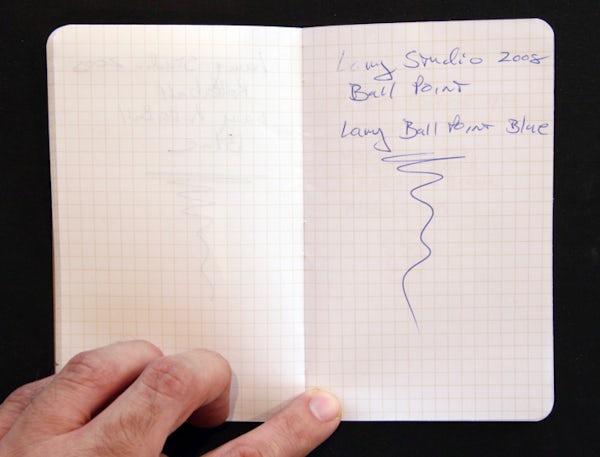 Lamy Studio 2008
Ball Point
Lamy Ball Point Blue